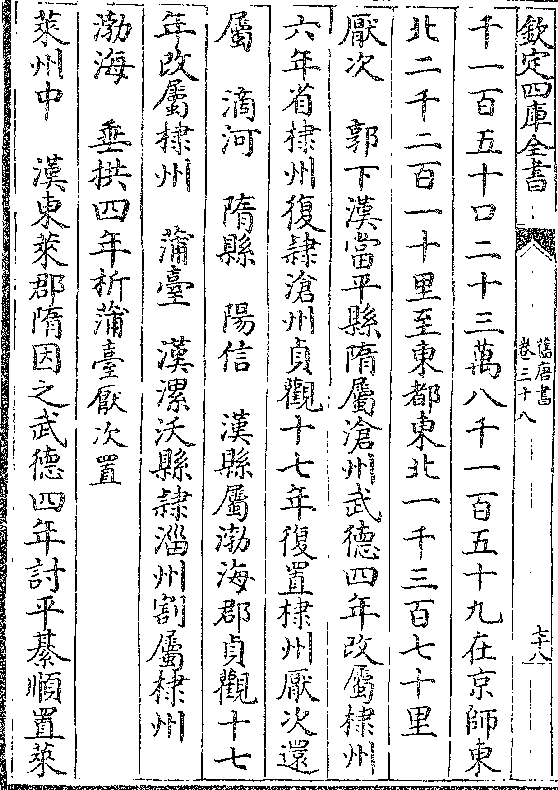 欽定四庫全書
舊唐書
卷三十八
七十八
千一百五十口二十三萬八千一百五十九在京師東
北二千二百一十里至東都東北一千三百七十里
厭次　郭下漢當平縣隋屬滄州武德四年改屬棣州
六年省棣州復隸滄州貞觀十七年復置棣州厭次還
屬　滴河　隋縣　陽信　漢縣屬渤海郡貞觀十七
年改屬棣州　蒲臺　漢漯沃縣隸淄州割屬棣州
渤海　垂拱四年析蒲臺厭次置
萊州中　漢東萊郡隋因之武德四年討平綦順置萊